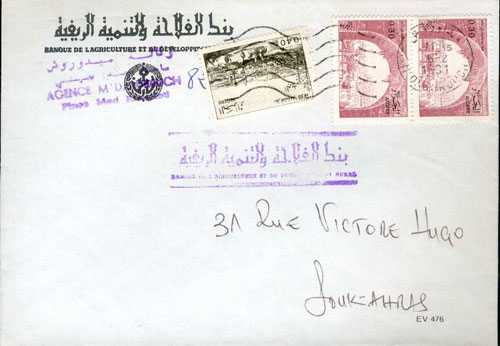 بنك الفلاحة والتنمية الريفية
BANQUE DE L'AGRICULTURE ET DU DEVELOPPEMENT
وكالة مداوروش
AGENCE M'DAOUROUCH
Place Med
87
0.40
0.30
0.30
بنك الفلاحة والتنمية الريفية
BANQUE DE L'AGRICULTURE ET DU DEVELOPPEMENT RURAL
31 RUE VICTOR HUGO
SOUK-AHRAS
EV 476